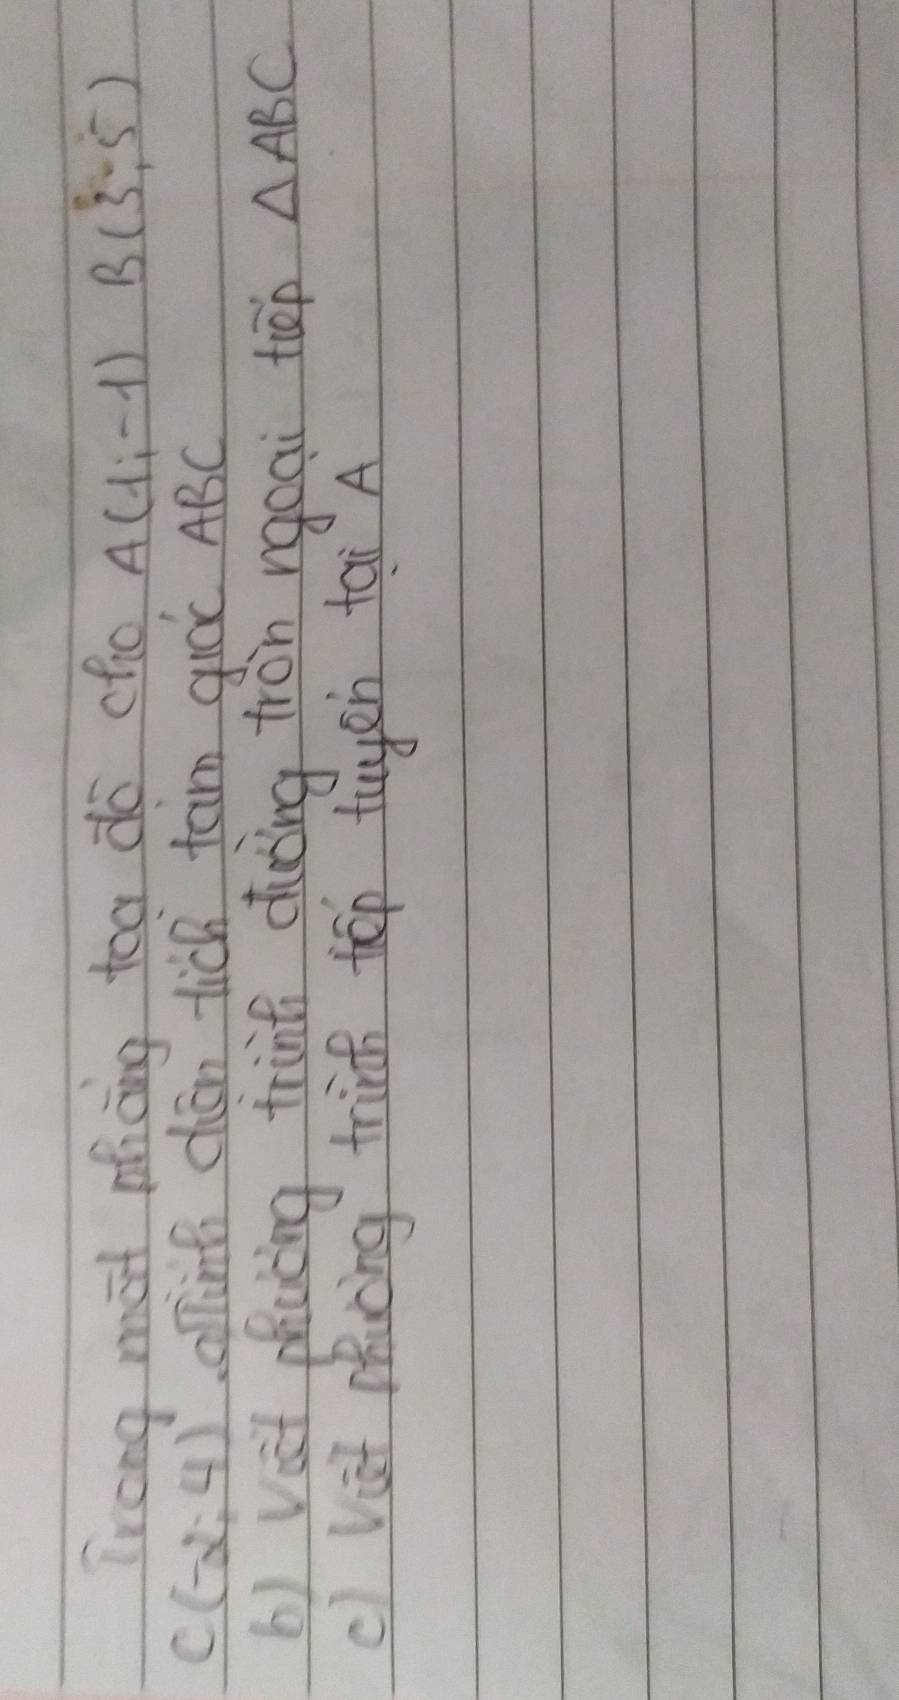 Trong mặt phẳng toạ độ cho A(1;-1) B(3;5)
C(-2;4) .a)Tính diện tích tam giác ABC
b) Viết phương trình đường tròn ngoại tiếp △ABC
c) Viết phương trình tiếp tuyến tại A